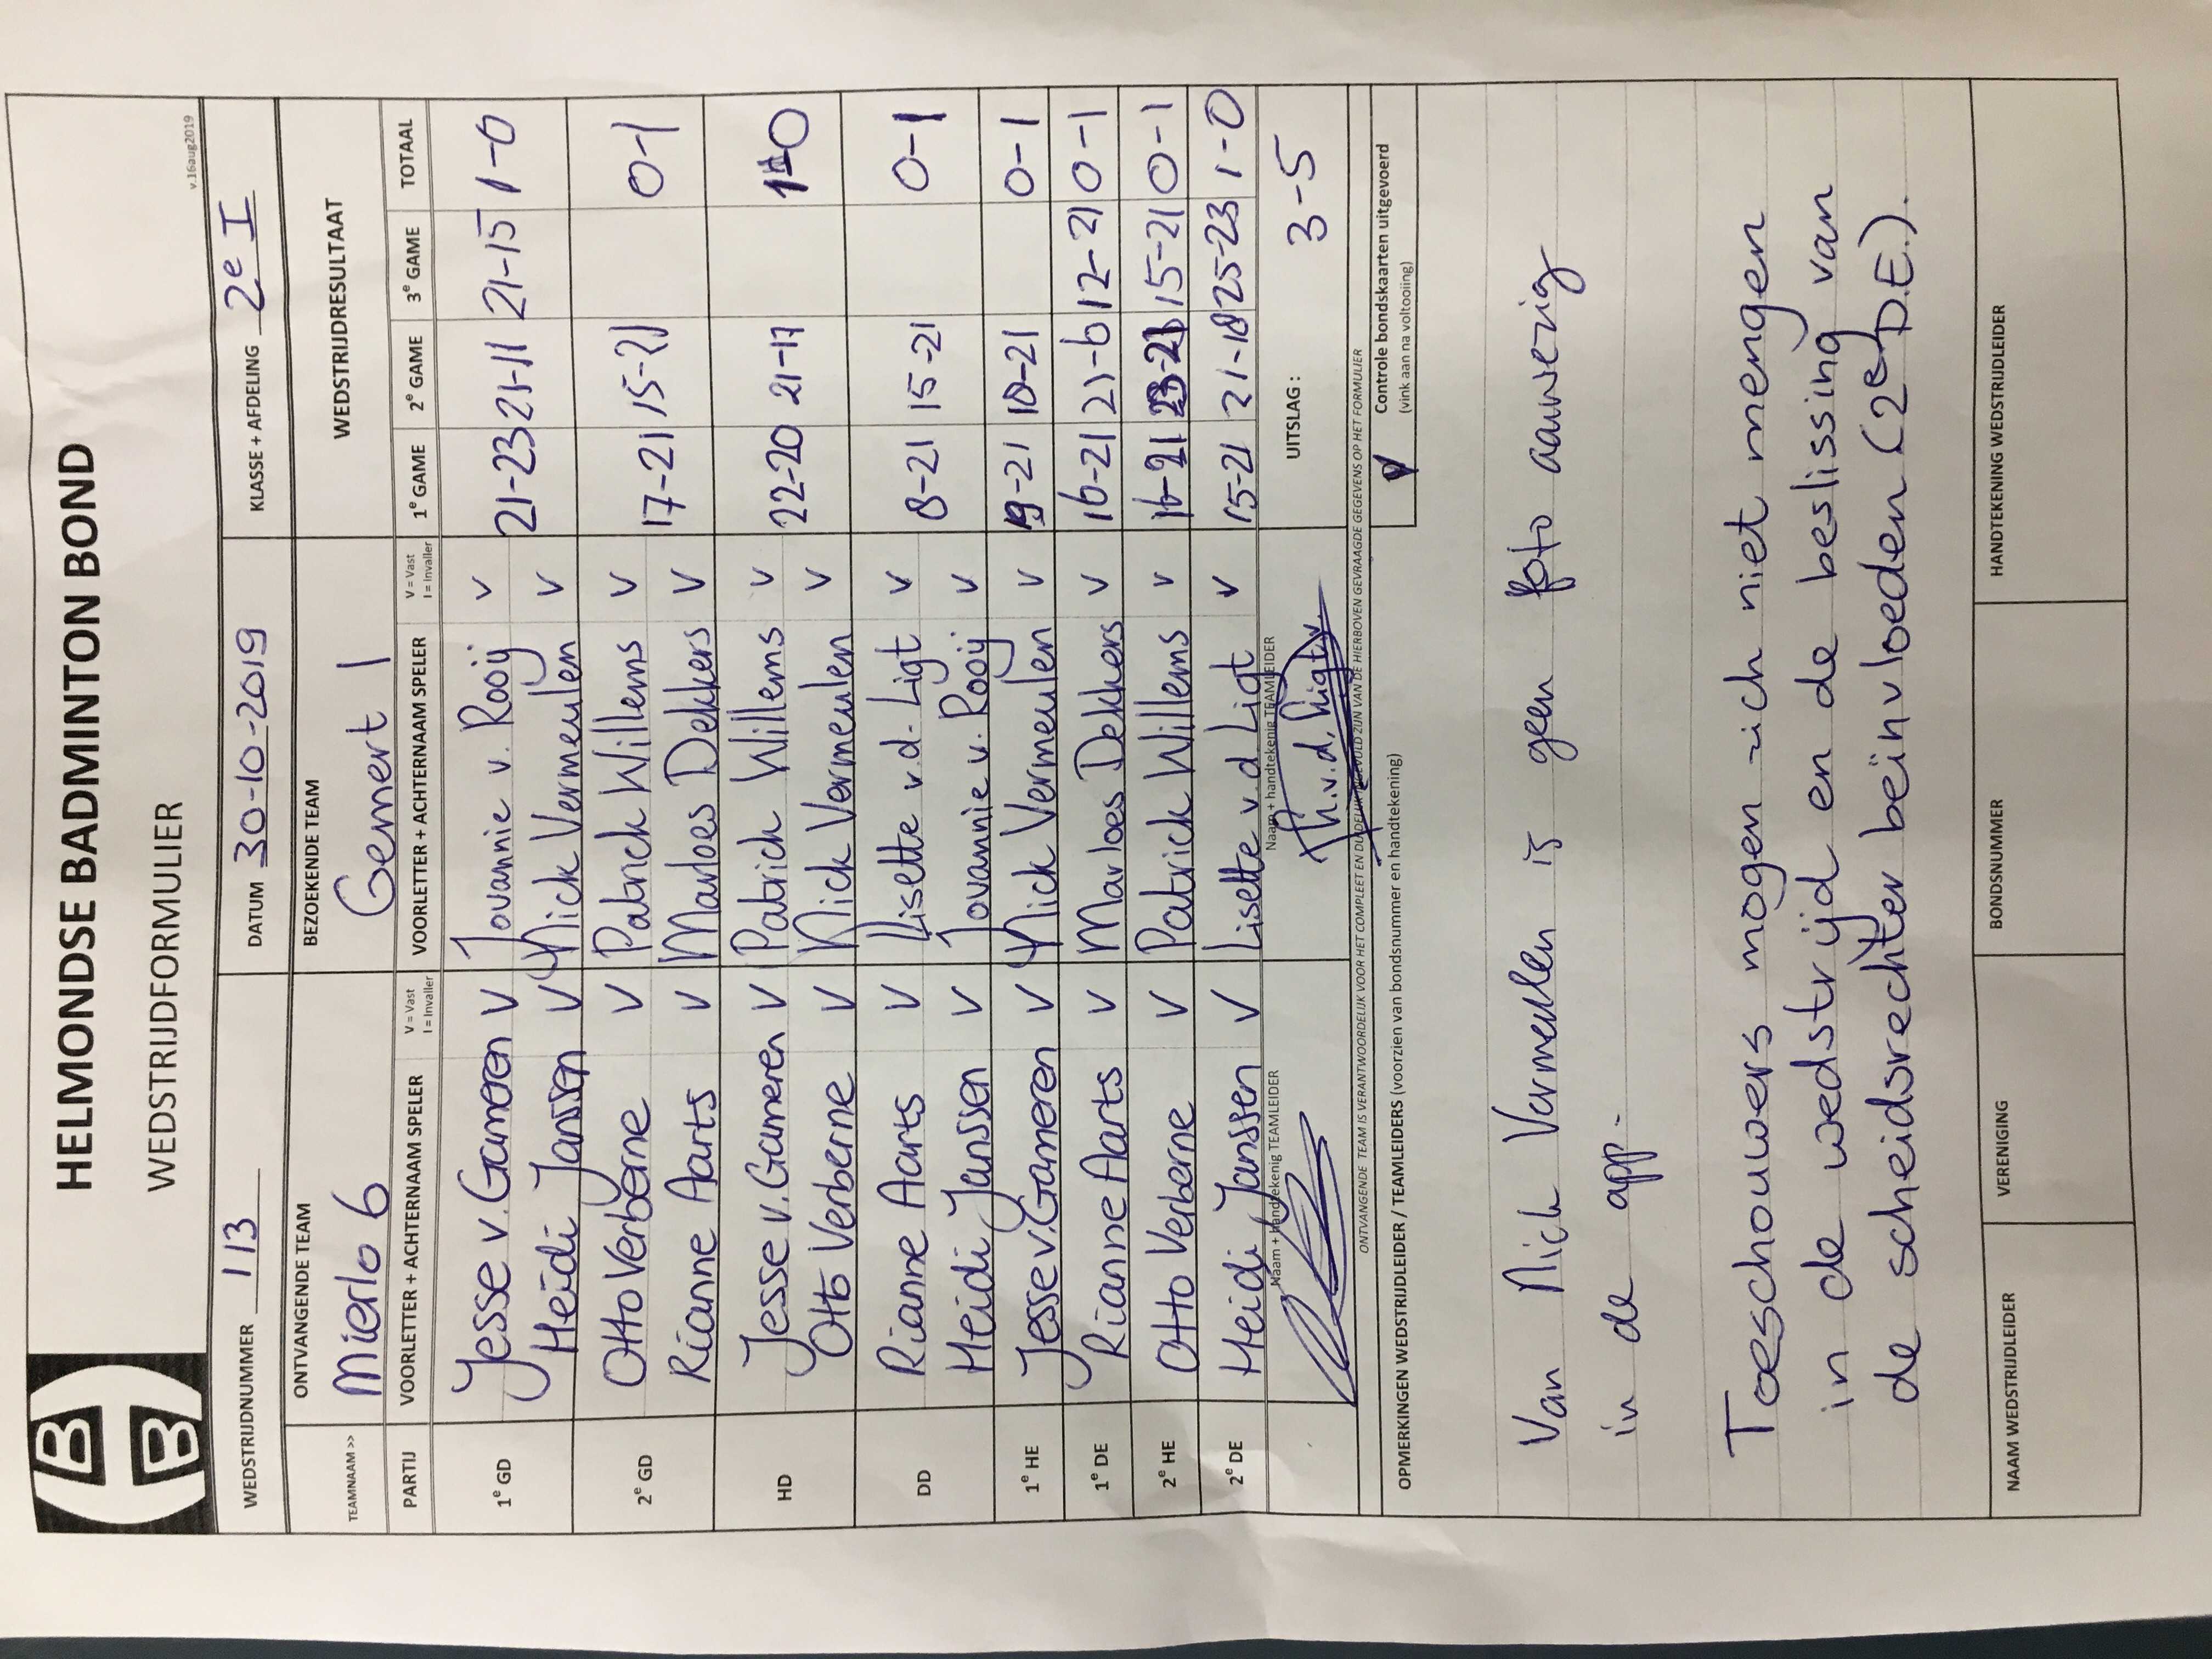 HELMONDSE BADMINTON BOND
WEDSTRIJDFORMULIER
v.16aug2019
WEDSTRIJDNUMMER 113 DATUM 30-10-2019 KLASSE + AFDELING 2e I
TEAMNAAM >> ONTVANGENDE TEAM BEZOEKENDE TEAM WEDSTRIJDRESULTAAT
Mierlo 6 Gemert 1
PARTIJ VOORLETTER + ACHTERNAAM SPELER V = Vast I = Invaller VOORLETTER + ACHTERNAAM SPELER V = Vast I = Invaller 1e GAME 2e GAME 3e GAME TOTAAL
1e GD Jesse v. Gameren V Jovannie v. Rooij V 21-23 21-11 21-15 1-0
Heidi Janssen V Nick Vermeulen V
2e GD Otto Verberne V Patrick Willems V 17-21 15-21 0-1
Rianne Aarts V Marloes Dekkers V
HD Jesse v. Gameren V Patrick Willems V 22-20 21-17 1-0
Otto Verberne V Nick Vermeulen V
DD Rianne Aarts V Lisette v.d. Ligt V 8-21 15-21 0-1
Heidi Janssen V Jovannie v. Rooij V
1e HE Jesse v. Gameren V Nick Vermeulen V 19-21 18-21 0-1
1e DE Rianne Aarts V Marloes Dekkers V 16-21 21-6 12-21 0-1
2e HE Otto Verberne V Patrick Willems V 16-21 23-21 15-21 0-1
2e DE Heidi Janssen V Lisette v.d. Ligt V 15-21 21-18 25-23 1-0
Naam + handtekenig TEAMLEIDER Naam + handtekenig TEAMLEIDER UITSLAG : 3-5
v.d. Ligt
ONTVANGENDE TEAM IS VERANTWOORDELIJK VOOR HET COMPLEET EN DUIDELIJK INGEVULD ZIJN VAN DE HIERBOVEN GEVRAAGDE GEGEVENS OP HET FORMULIER
OPMERKINGEN WEDSTRIJDLEIDER / TEAMLEIDERS (voorzien van bondsnummer en handtekening) V Controle bondskaarten uitgevoerd
(vink aan na voltooiing)
Van Nick Vermeulen is geen foto aanwezig
in de app.
Toeschouwers mogen zich niet mengen
in de wedstrijd en de beslissing van
de scheidsrechter beïnvloeden (2e D.E.).
NAAM WEDSTRIJDLEIDER VERENIGING BONDSNUMMER HANDTEKENING WEDSTRIJDLEIDER